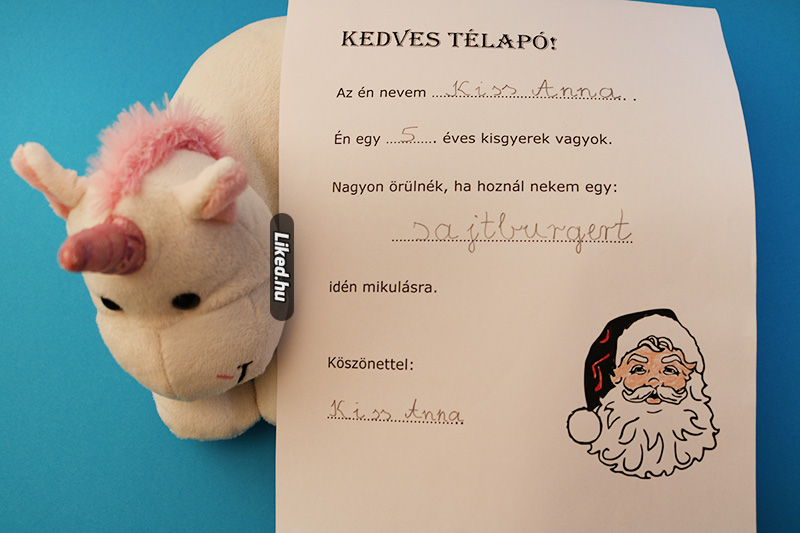 KEDVES TÉLAPÓ!
Az én nevem Kiss Anna.
Én egy 5 éves kisgyerek vagyok.
Nagyon örülnék, ha hoznál nekem egy:
sajtburgert
idén mikulásra.
Köszönettel:
Kiss Anna
Liked.hu